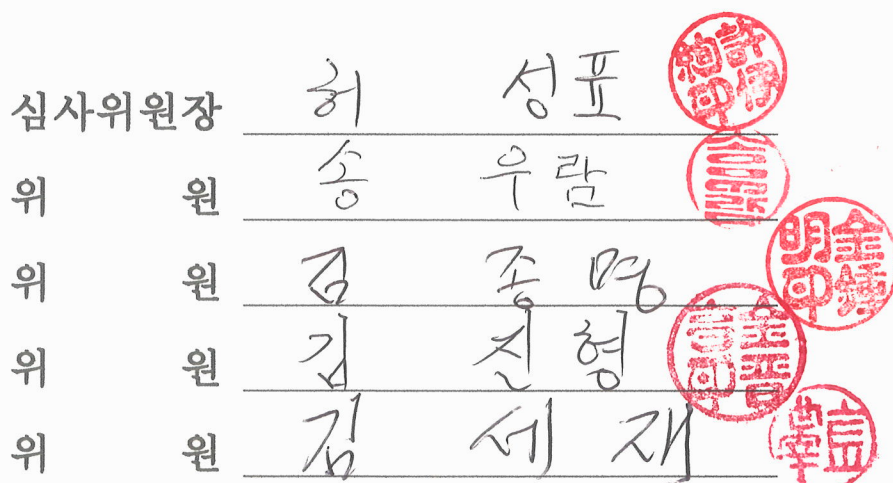 심사위원장 허 성표
위 원 송 우람
위 원 김 종명
위 원 김 진형
위 원 김 세재